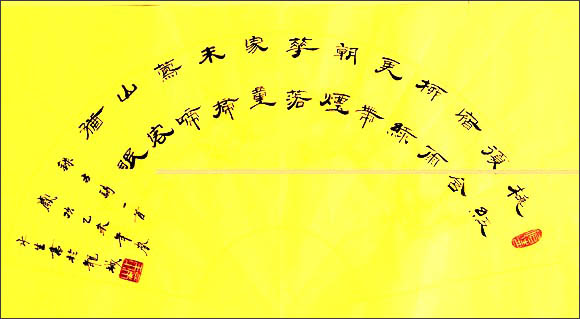 桃紅
復含
宿雨
柳綠
更帶
朝煙
華落
家童
未掃
鶯啼
山客
猶眠
錄古詩一首
歲次乙未年春
書於龍城